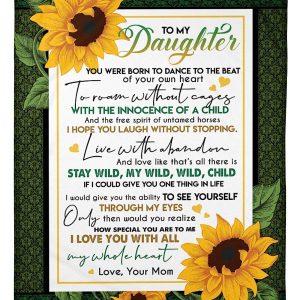 TO MY
Daughter
YOU WERE BORN TO DANCE TO THE BEAT
of your own heart
To roam without cages
WITH THE INNOCENCE OF A CHILD
And the free spirit of untamed horses
I HOPE YOU LAUGH WITHOUT STOPPING.
Live with abandon
And love like that's all there is
STAY WILD, MY WILD, WILD, CHILD
IF I COULD GIVE YOU ONE THING IN LIFE
I would give you the ability TO SEE YOURSELF
THROUGH MY EYES
Only then would you realize
HOW SPECIAL YOU ARE TO ME
I LOVE YOU WITH ALL
my whole heart
Love, Your Mom